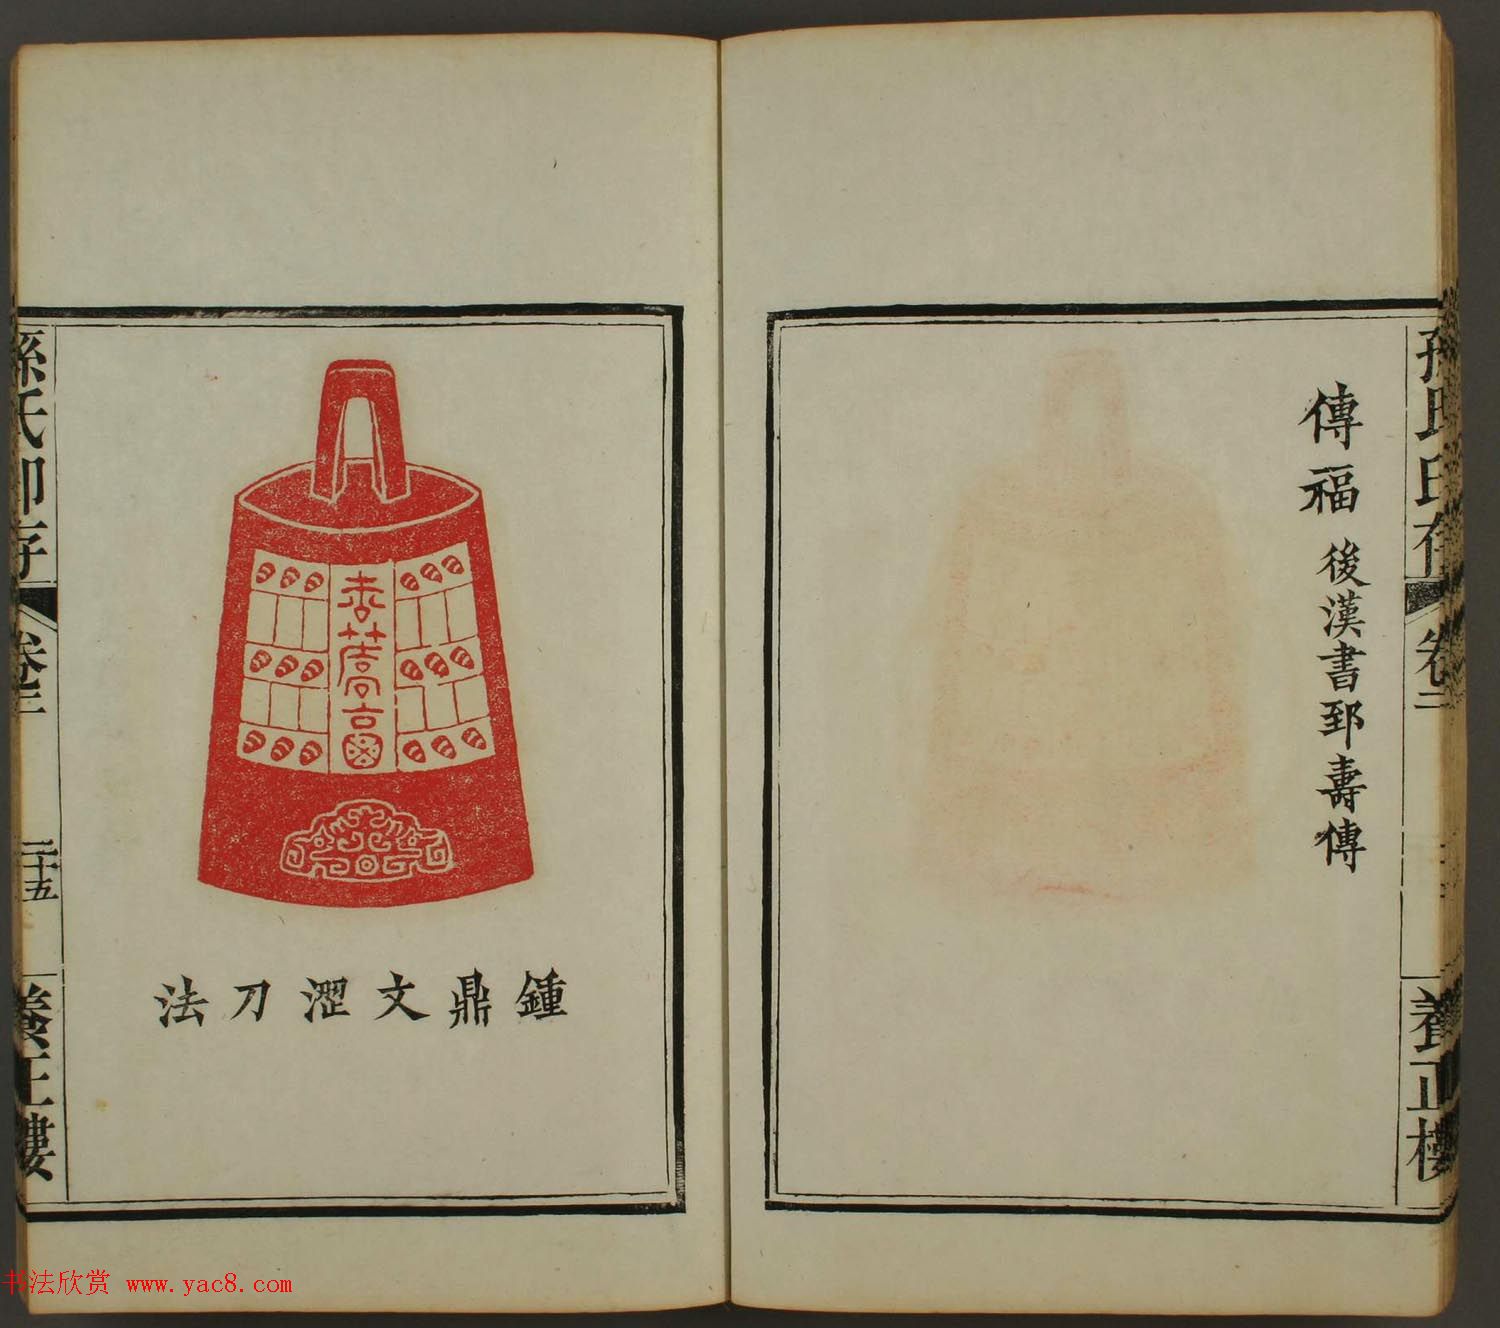 孫氏印存
卷三
養正樓
傳福
後漢書郅壽傳
鍾鼎文澀刀法
孫氏印存
卷三
二十五
養正樓
书法欣赏 www.yac8.com